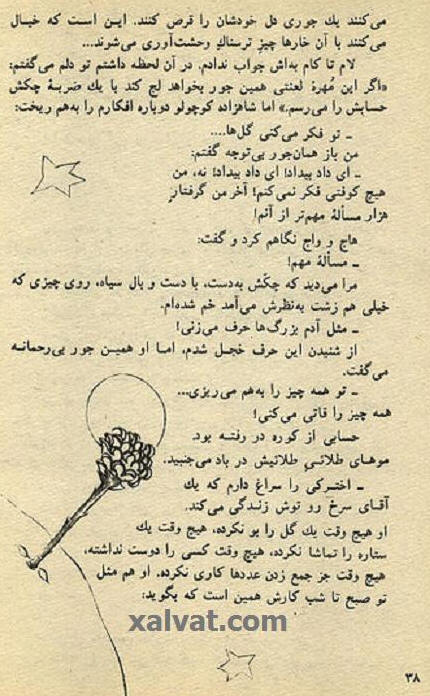 می‌کنند یك جوری دل خودشان را قرص کنند. ایـن اسـت که خیـال
می‌کنند با آن خارها چیزِ ترسناكِ وحشت‌آوری می‌شوند...
لام تا کام به‌اش جواب ندادم. در آن لحظه داشتم تو دلم می‌گفتم:
«اگر این مُهرهٔ لعنتی همین جور بخواهد لج کند با یك ضربـهٔ چکش
حسابش را می‌رسم.» اما شاهزاده کوچولو دوباره افکارم را به‌هم ریخت:
ـ تو فکر می‌کنی گل‌ها....
من باز همان‌جور بی‌توجه گفتم:
ـ ای داد بیداد! ای داد بیداد! نه، من
هیچ کوفتی فکر نمی‌کنم! آخر من گرفتار
هزار مسألهٔ مهم‌تر از آنم!
هاج و واج نگاهم کرد و گفت:
ـ مسألهٔ مهم!
مرا می‌دید که چکّش به‌دست، با دست و بال سیاه، روی چیزی که
خیلی هم زشت به‌نظرش می‌آمد خم شده‌ام.
ـ مثل آدم بزرگ‌ها حرف می‌زنی!
از شنیدن این حرف خجـل شدم، امـا او همیـن جور بی‌رحمانـه
می‌گفت.
ـ تو همه چیز را به‌هم می‌ریزی...
همه چیز را قاتی می‌کنی!
حسابی از کوره در رفتـه بود.
موهـای طلائـی طلائیش در باد می‌جنبید.
ـ اختـرکی را سراغ دارم که یك
آقـای سرخ رو توش زنـدگی می‌کند.
او هیچ وقت یك گل را بو نکرده، هیچ وقت یك
ستاره را تماشا نکرده، هیچ وقت کسی را دوست نداشته،
هیچ وقت جز جمع زدن عددها کاری نکرده. او هم مثل
تو صبح تا شب کارش همین است که بگوید:
xalvat.com
۳۸